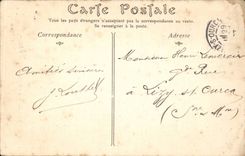 Carte Postale
Tous les pays étrangers n'acceptent pas la correspondance au verso.
Se renseigner à la poste.
Correspondance
Adresse
Amitiés sincères
Monsieur Henri
Gde Rue
à Lizy sur Ourcq
(Sne Mne)